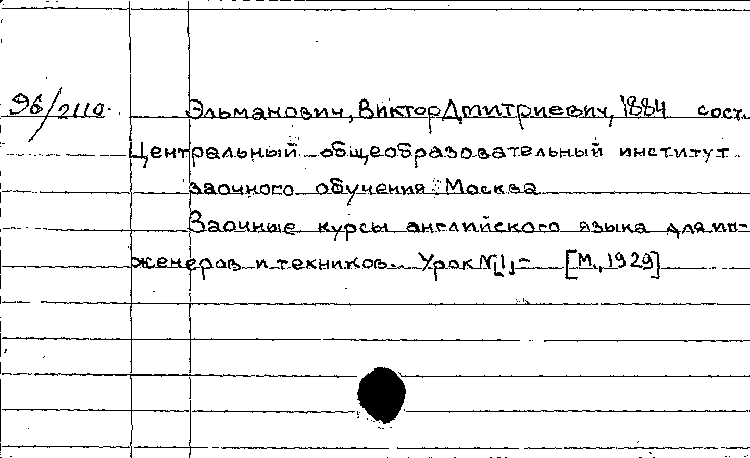 96/2110. Эльманович, Виктор Дмитриевич, 1884 сост.
Центральный общеобразовательный институт
заочного обучения Москва
Заочные курсы английского языка для ин-
женеров и техников. Урок №1,- [М., 1929]